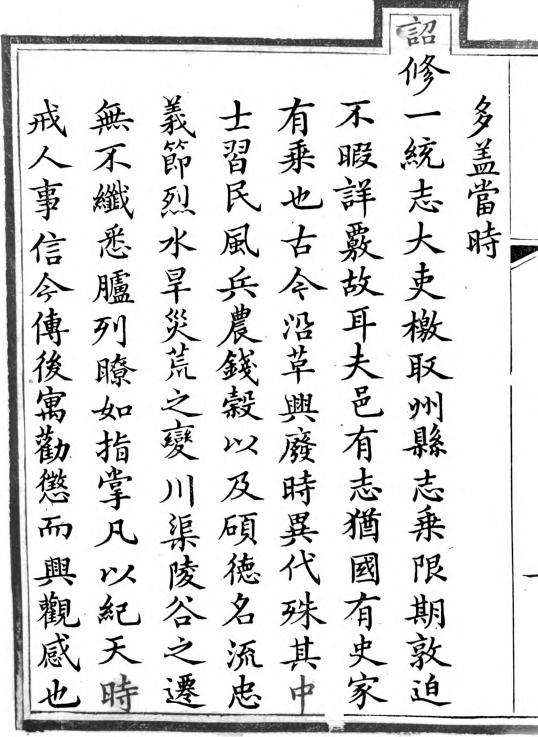 多盖當時
詔修一統志大吏檄取州縣志乗限期敦迫
不暇詳覈故耳夫邑有志猶國有史家
有乗也古今沿革興廢時異代殊其中
士習民風兵農錢穀以及碩徳名流忠
義節烈水旱災荒之變川渠陵谷之遷
無不纖悉臚列瞭如指掌凡以紀天時
戒人事信今傳後寓勸懲而興觀感也